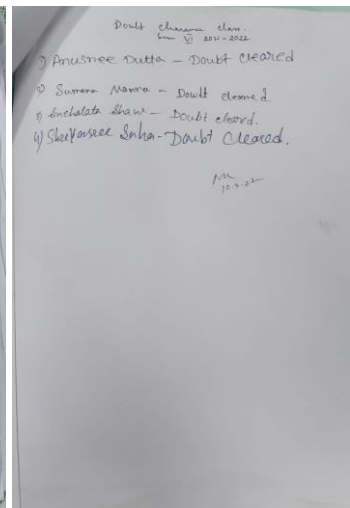 Doubt clearance class.
Sem VI 2021-2022
1) Anusree Dutta - Doubt cleared
2) Sumana Manna - Doubt cleared
3) Snehalata Shaw - Doubt cleared.
4) Sinha - Doubt Cleared.
10.5.22